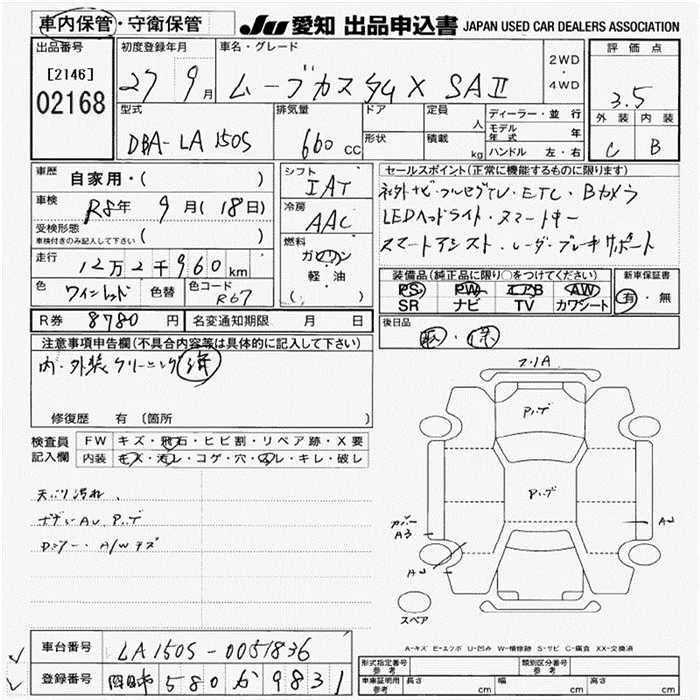 車内保管・守衛保管 JU 愛知 出品申込書 JAPAN USED CAR DEALERS ASSOCIATION
出品番号 初度登録年月 車名・グレード 評価点
[2146] 02168 27 9月 ムーブカスタム X SAⅡ 2WD・4WD 3.5
型式 排気量 ドア 定員 人 ディーラー・並行 外装 内装
DBA-LA150S 660 CC 形状 積載 kg モデル年式 年 C B
ハンドル 左・右
車歴 自家用・( ) シフト IAT セールスポイント(正常に機能するものに限ります)
車検 R8年 9月(18日) 冷房 AAC 社外ナビ・フルセグTV・ETC・Bカメラ
受検形態 車検付きのみ記入して下さい ( ) LEDヘッドライト・スマートキー
走行 12万2千960km 燃料 ガソリン 軽・油 ( ) スマートアシスト・レーダーブレーキサポート
色 ワインレッド 色替 色コード R67
装備品(純正品に限り○をつけてください) 新車保証書
PS PW エアB AW 有・無
SR ナビ TV カワシート
R券 8780円 名変通知期限 月 日 後日品
注意事項申告欄(不具合内容等は具体的に記入して下さい) 取・保
内・外装クリーニング済
修復歴 有 〔箇所
検査員記入欄 FW キズ・飛石・ヒビ割・リペア跡・X要
内装 キズ・汚レ・コゲ・穴・スレ・キレ・破レ
フ・リA
P.ップ
P.ップ
天バリ汚れ、
ボディーAU P.ップ
Dミラー・A/Wキズ
A3
A2
A2
スペア
A-キズ E-エクボ U-凹み W-補修跡 S-サビ C-腐食 XX-交換済
車台番号 LA150S-0051836
登録番号 580 か 9831
形式指定番号 参考 類別区分番号 参考
車庫証明用 参考 長さ cm 幅 cm 高さ cm